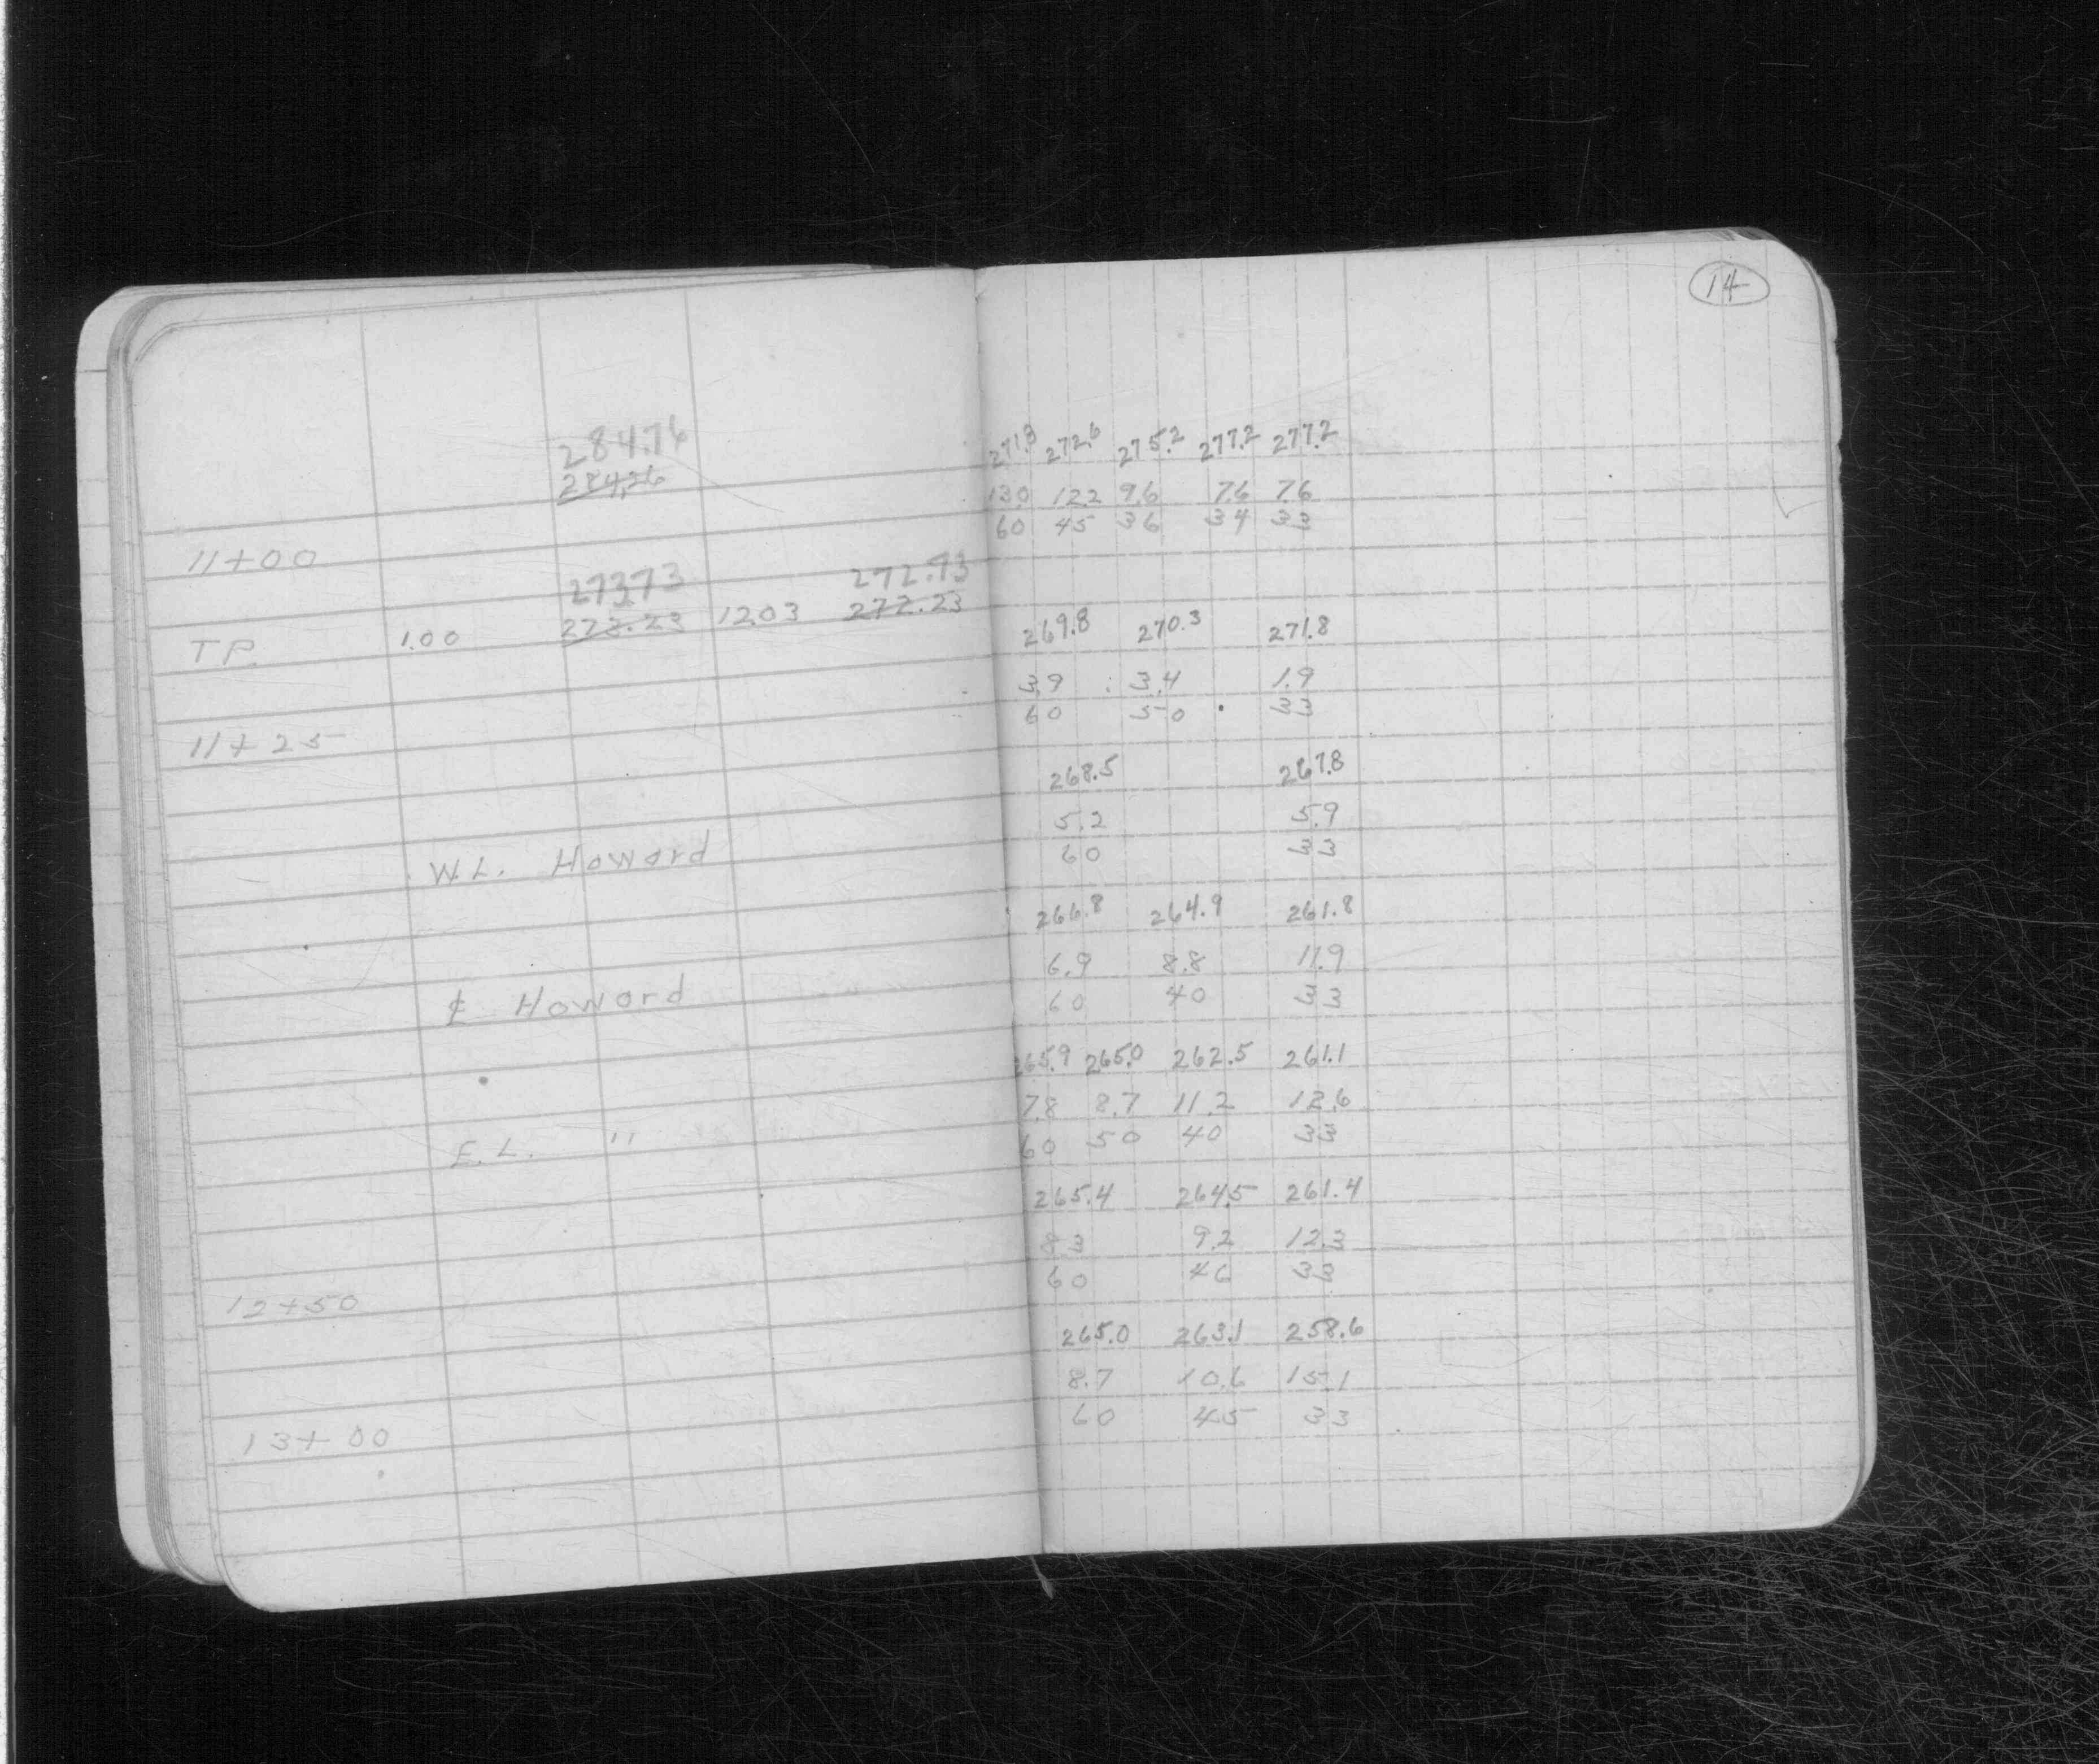 14
284.76
284.26
271.8 272.6 275.2 277.2 277.2
13.0 12.2 9.6 7.6 7.6
11+00 60 45 36 34 33
273.73 272.73
TP. 1.00 273.23 12.03 272.23
269.8 270.3 271.8
3.9 3.4 1.9
11+25 60 50 33
268.5 267.8
5.2 5.9
W.L. Howard 60 33
266.8 264.9 261.8
6.9 8.8 11.9
₵ Howard 60 40 33
265.9 265.0 262.5 261.1
7.8 8.7 11.2 12.6
E.L. " 60 50 40 33
265.4 264.5 261.4
8.3 9.2 12.3
12+50 60 46 33
265.0 263.1 258.6
8.7 10.6 15.1
13+00 60 45 33